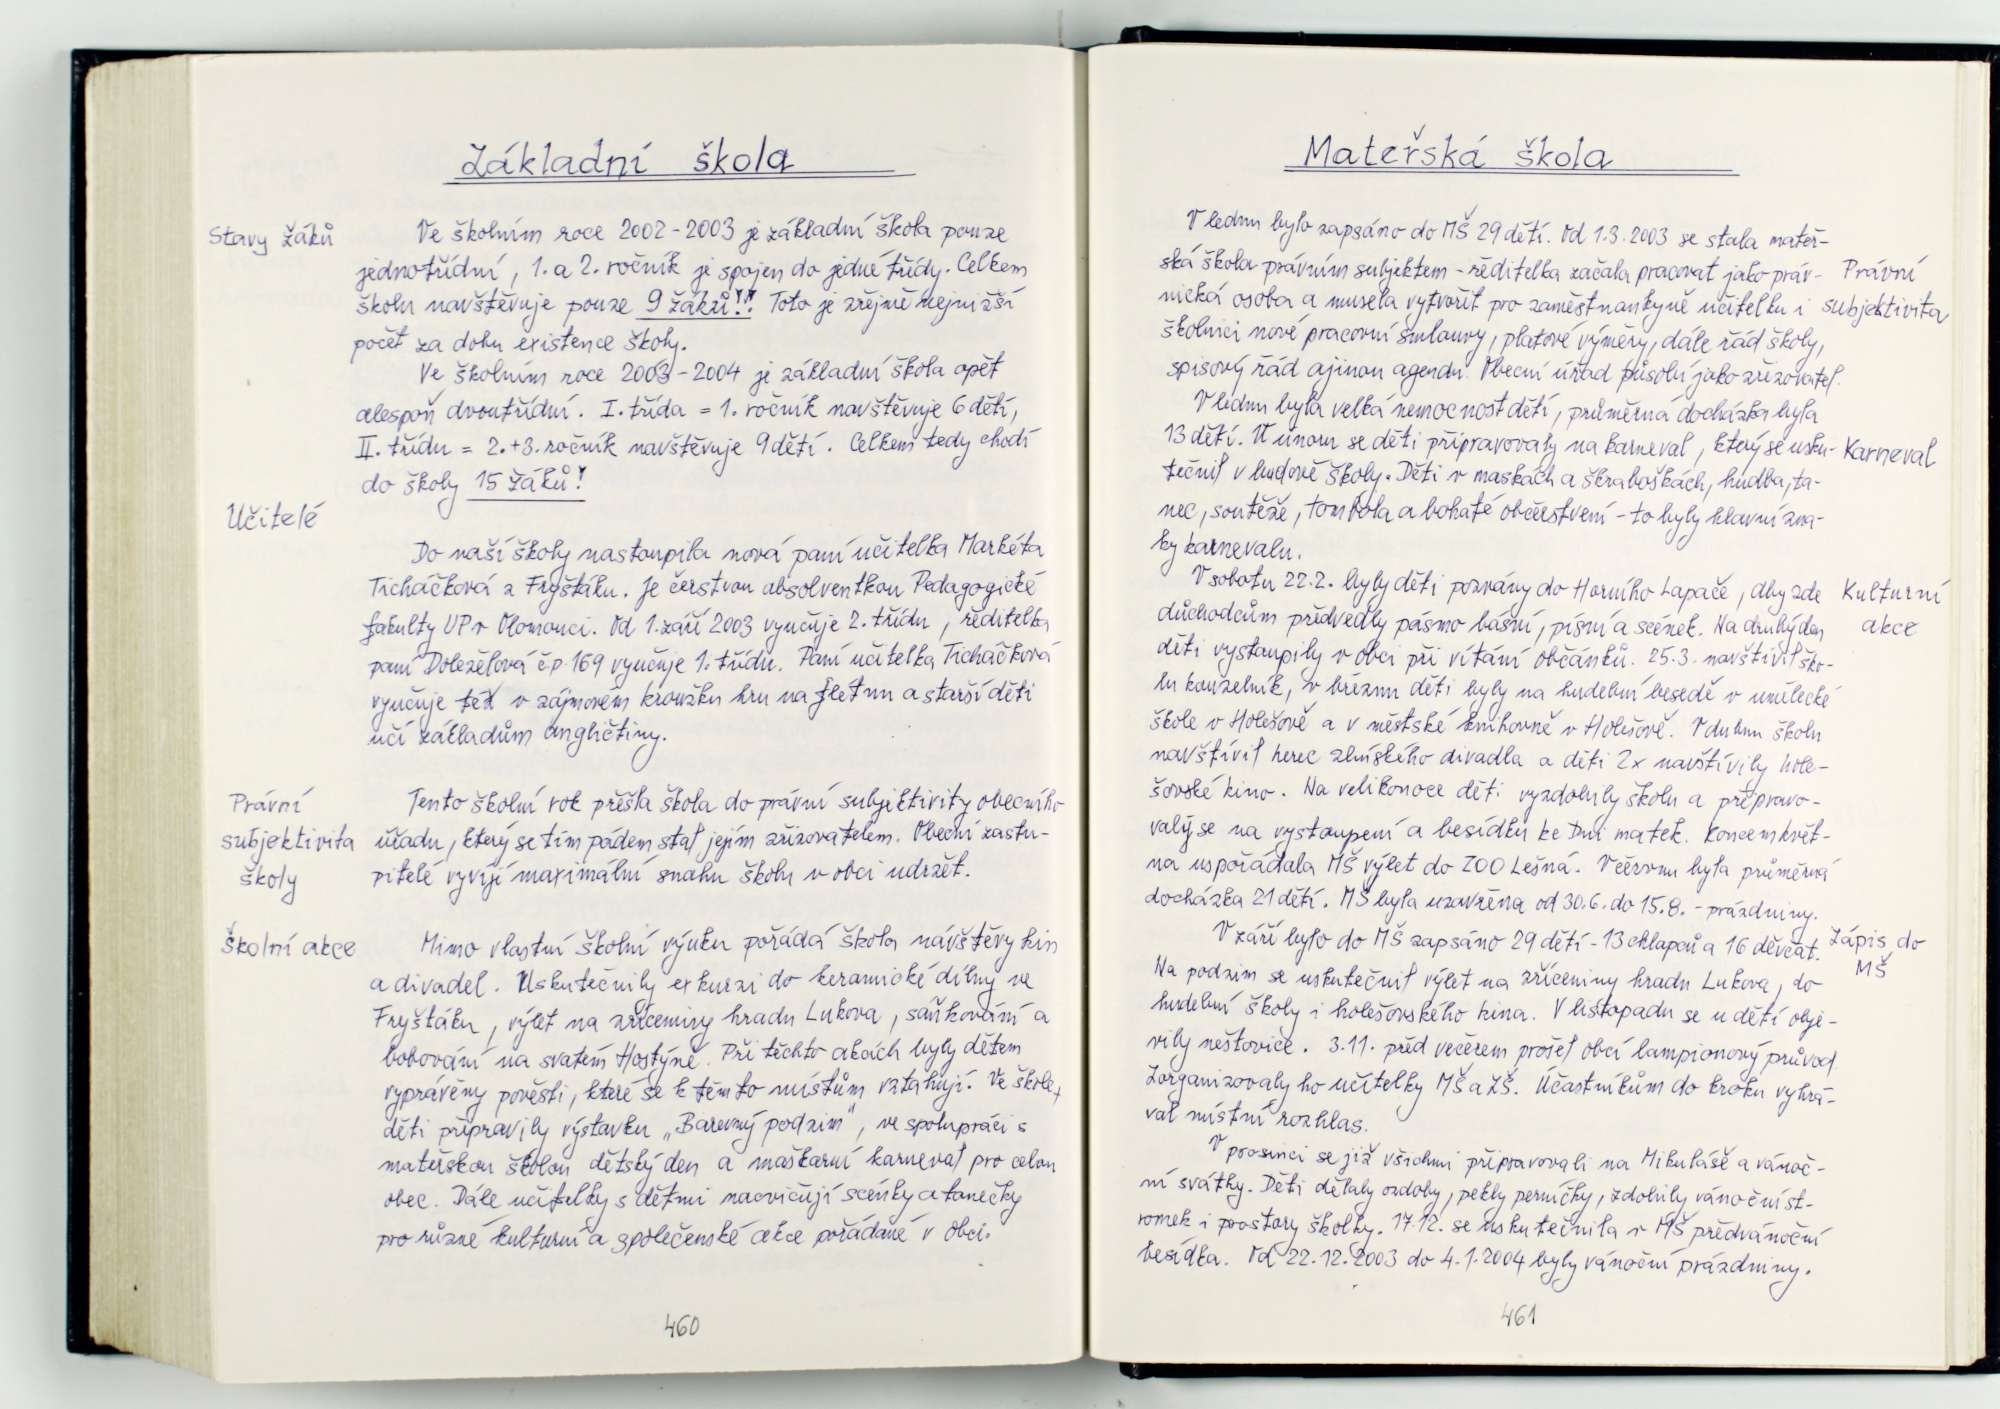 Základní škola
Stavy žáků
Ve školním roce 2002-2003 je základní škola pouze
jednotřídní, 1. a 2. ročník je spojen do jedné třídy. Celkem
školu navštěvuje pouze 9 žáků!! Toto je zřejmě nejnižší
počet za dobu existence školy.
Ve školním roce 2003-2004 je základní škola opět
alespoň dvoutřídní. I. třída = 1. ročník navštěvuje 6 dětí,
II. třídu = 2.+3. ročník navštěvuje 9 dětí. Celkem tedy chodí
do školy 15 žáků!
Učitelé
Do naší školy nastoupila nová paní učitelka Markéta
Ticháčková z Fryštáku. Je čerstvou absolventkou Pedagogické
fakulty UP v Olomouci. Od 1. září 2003 vyučuje 2. třídu, ředitelka
paní Doleželová č.p. 169 vyučuje 1. třídu. Paní učitelka Ticháčková
vyučuje též v zájmovém kroužku hru na flétnu a starší děti
učí základům angličtiny.
Právní
subjektivita
školy
Tento školní rok přešla škola do právní subjektivity obecního
úřadu, který se tím pádem stal jejím zřizovatelem. Obecní zastu-
pitelé vyvíjí maximální snahu školu v obci udržet.
Školní akce
Mimo vlastní školní výuku pořádá škola návštěvy kin
a divadel. Uskutečnily exkurzi do keramické dílny ve
Fryštáku, výlet na zříceniny hradu Lukova, sáňkování a
bobování na svatém Hostýně. Při těchto akcích byly dětem
vyprávěny pověsti, které se k těmto místům vztahují. Ve škole
děti připravily výstavku „Barevný podzim", ve spolupráci s
mateřskou školou dětský den a maškarní karneval pro celou
obec. Dále učitelky s dětmi nacvičují scénky a tanečky
pro různé kulturní a společenské akce pořádané v obci.
460
Mateřská škola
V lednu bylo zapsáno do MŠ 29 dětí. Od 1.3.2003 se stala mateř-
ská škola právním subjektem - ředitelka začala pracovat jako práv-
nická osoba a musela vytvořit pro zaměstnankyně učitelku i
školnici nové pracovní smlouvy, platové výměry, dále řád školy,
spisový řád a jinou agendu. Obecní úřad působí jako zřizovatel.
Právní
subjektivita
V lednu byla velká nemocnost dětí, průměrná docházka byla
13 dětí. V únoru se děti připravovaly na karneval, který se usku-
tečnil v budově školy. Děti v maskách a škraboškách, hudba, ta-
nec, soutěže, tombola a bohaté občerstvení - to byly hlavní zna-
ky karnevalu.
Karneval
V sobotu 22.2. byly děti pozvány do Horního Lapače, aby zde
důchodcům předvedly pásmo básní, písní a scének. Na druhý den
děti vystoupily v obci při vítání občánků. 25.3. navštívil ško-
lu kouzelník, v březnu děti byly na hudební besedě v umělecké
škole v Holešově a v městské knihovně v Holešově. V dubnu školu
navštívil herec zlínského divadla a děti 2x navštívily hole-
šovské kino. Na velikonoce děti vyzdobily školu a připravo-
valy se na vystoupení a besídku ke Dni matek. Koncem květ-
na uspořádala MŠ výlet do ZOO Lešná. V červnu byla průměrná
docházka 21 dětí. MŠ byla uzavřena od 30.6. do 15.8. - prázdniny.
Kulturní
akce
V září bylo do MŠ zapsáno 29 dětí - 13 chlapců a 16 děvčat.
Na podzim se uskutečnil výlet na zříceniny hradu Lukova, do
hudební školy i holešovského kina. V listopadu se u dětí obje-
vily neštovice. 3.11. před večerem prošel obcí lampionový průvod.
Zorganizovaly ho učitelky MŠ a ZŠ. Účastníkům do kroku vyhrá-
val místní rozhlas.
Zápis do
MŠ
V prosinci se již všichni připravovali na Mikuláše a vánoč-
ní svátky. Děti dělaly ozdoby, pekly perníčky, zdobily vánoční st-
romek i prostory školky. 17.12. se uskutečnila v MŠ předvánoční
besídka. Od 22.12.2003 do 4.1.2004 byly vánoční prázdniny.
461